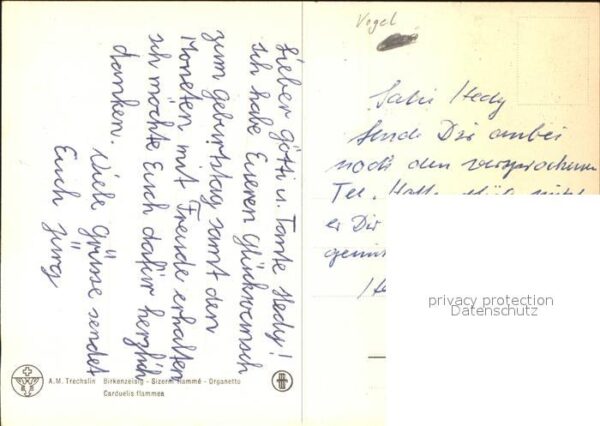 Lieber götti u. Tante Hedy!
ich habe Eueren Glückwunsch
zum geburtstag samt den
Moneten mit Freude erhalten
ich möchte Euch dafür herzlich
danken.
Viele Grüsse sendet
Euch Jürg
A.M. Trechslin Birkenzeisig - Sizerin flammé - Organetto
Carduelis flammea
Vogel
Salü Hedy
Sende Dir anbei
noch den versprochenen
Tel.
er Dir
privacy protection
Datenschutz